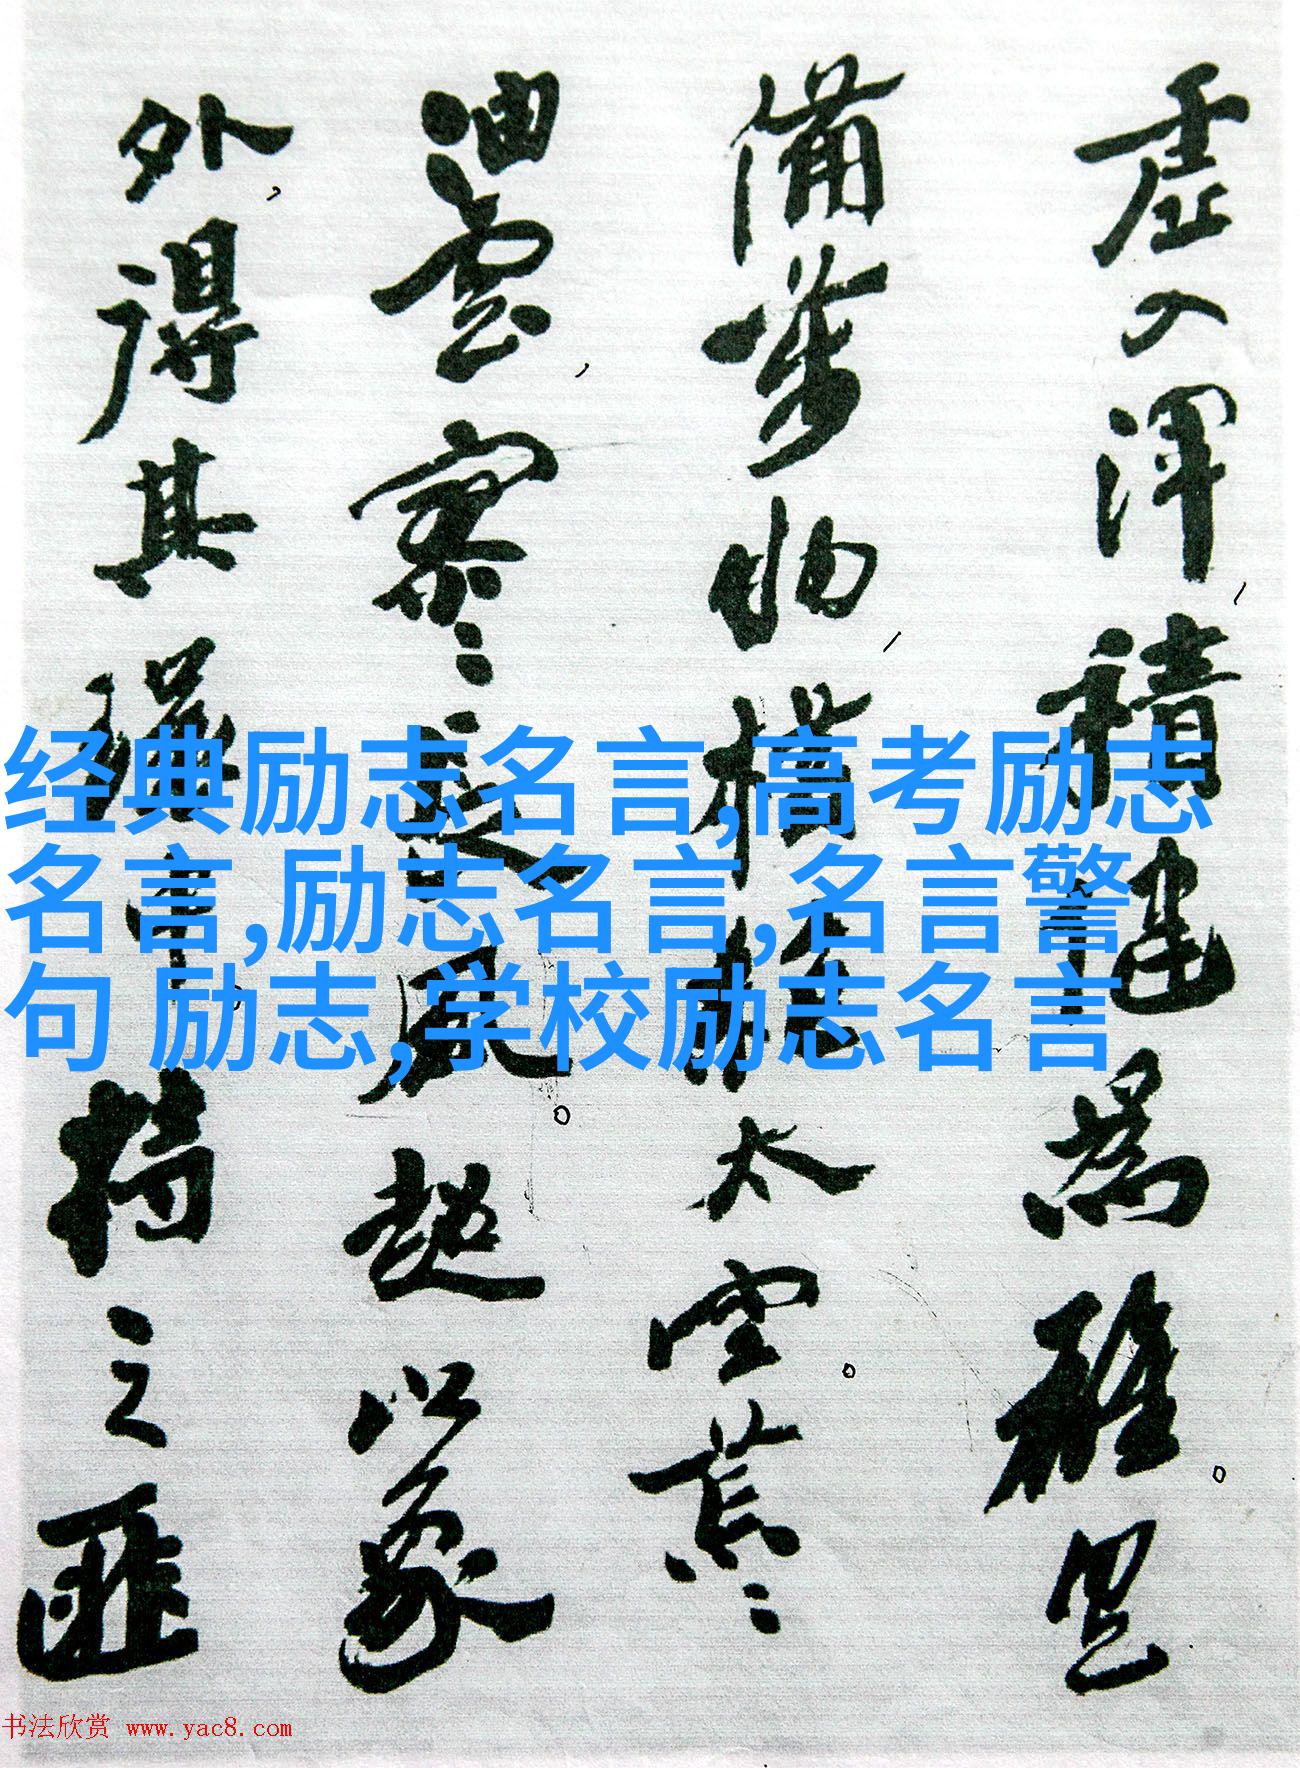 虚入渾，積健為雄。具
備萬物，横絶太空。荒〻
油雲，寥〻長風。超以象
外，得其環中。持之匪
经典励志名言,高考励志
名言,励志名言,名言警
句 励志,学校励志名言
书法欣赏 www.yac8.com